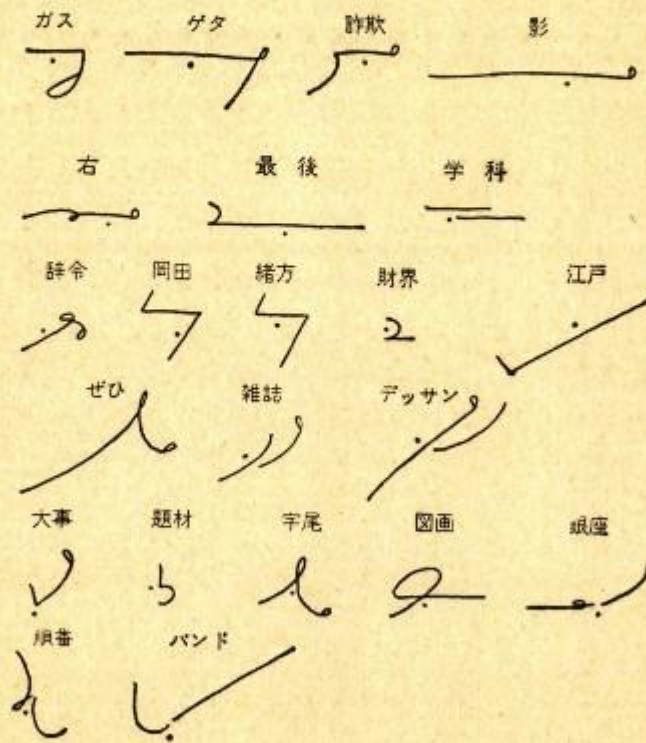 ガス ゲタ 詐欺 影
右 最後 学科
辞令 岡田 緒方 財界 江戸
ぜひ 雑誌 デッサン
大事 題材 字尾 図画 銀座
順番 バンド